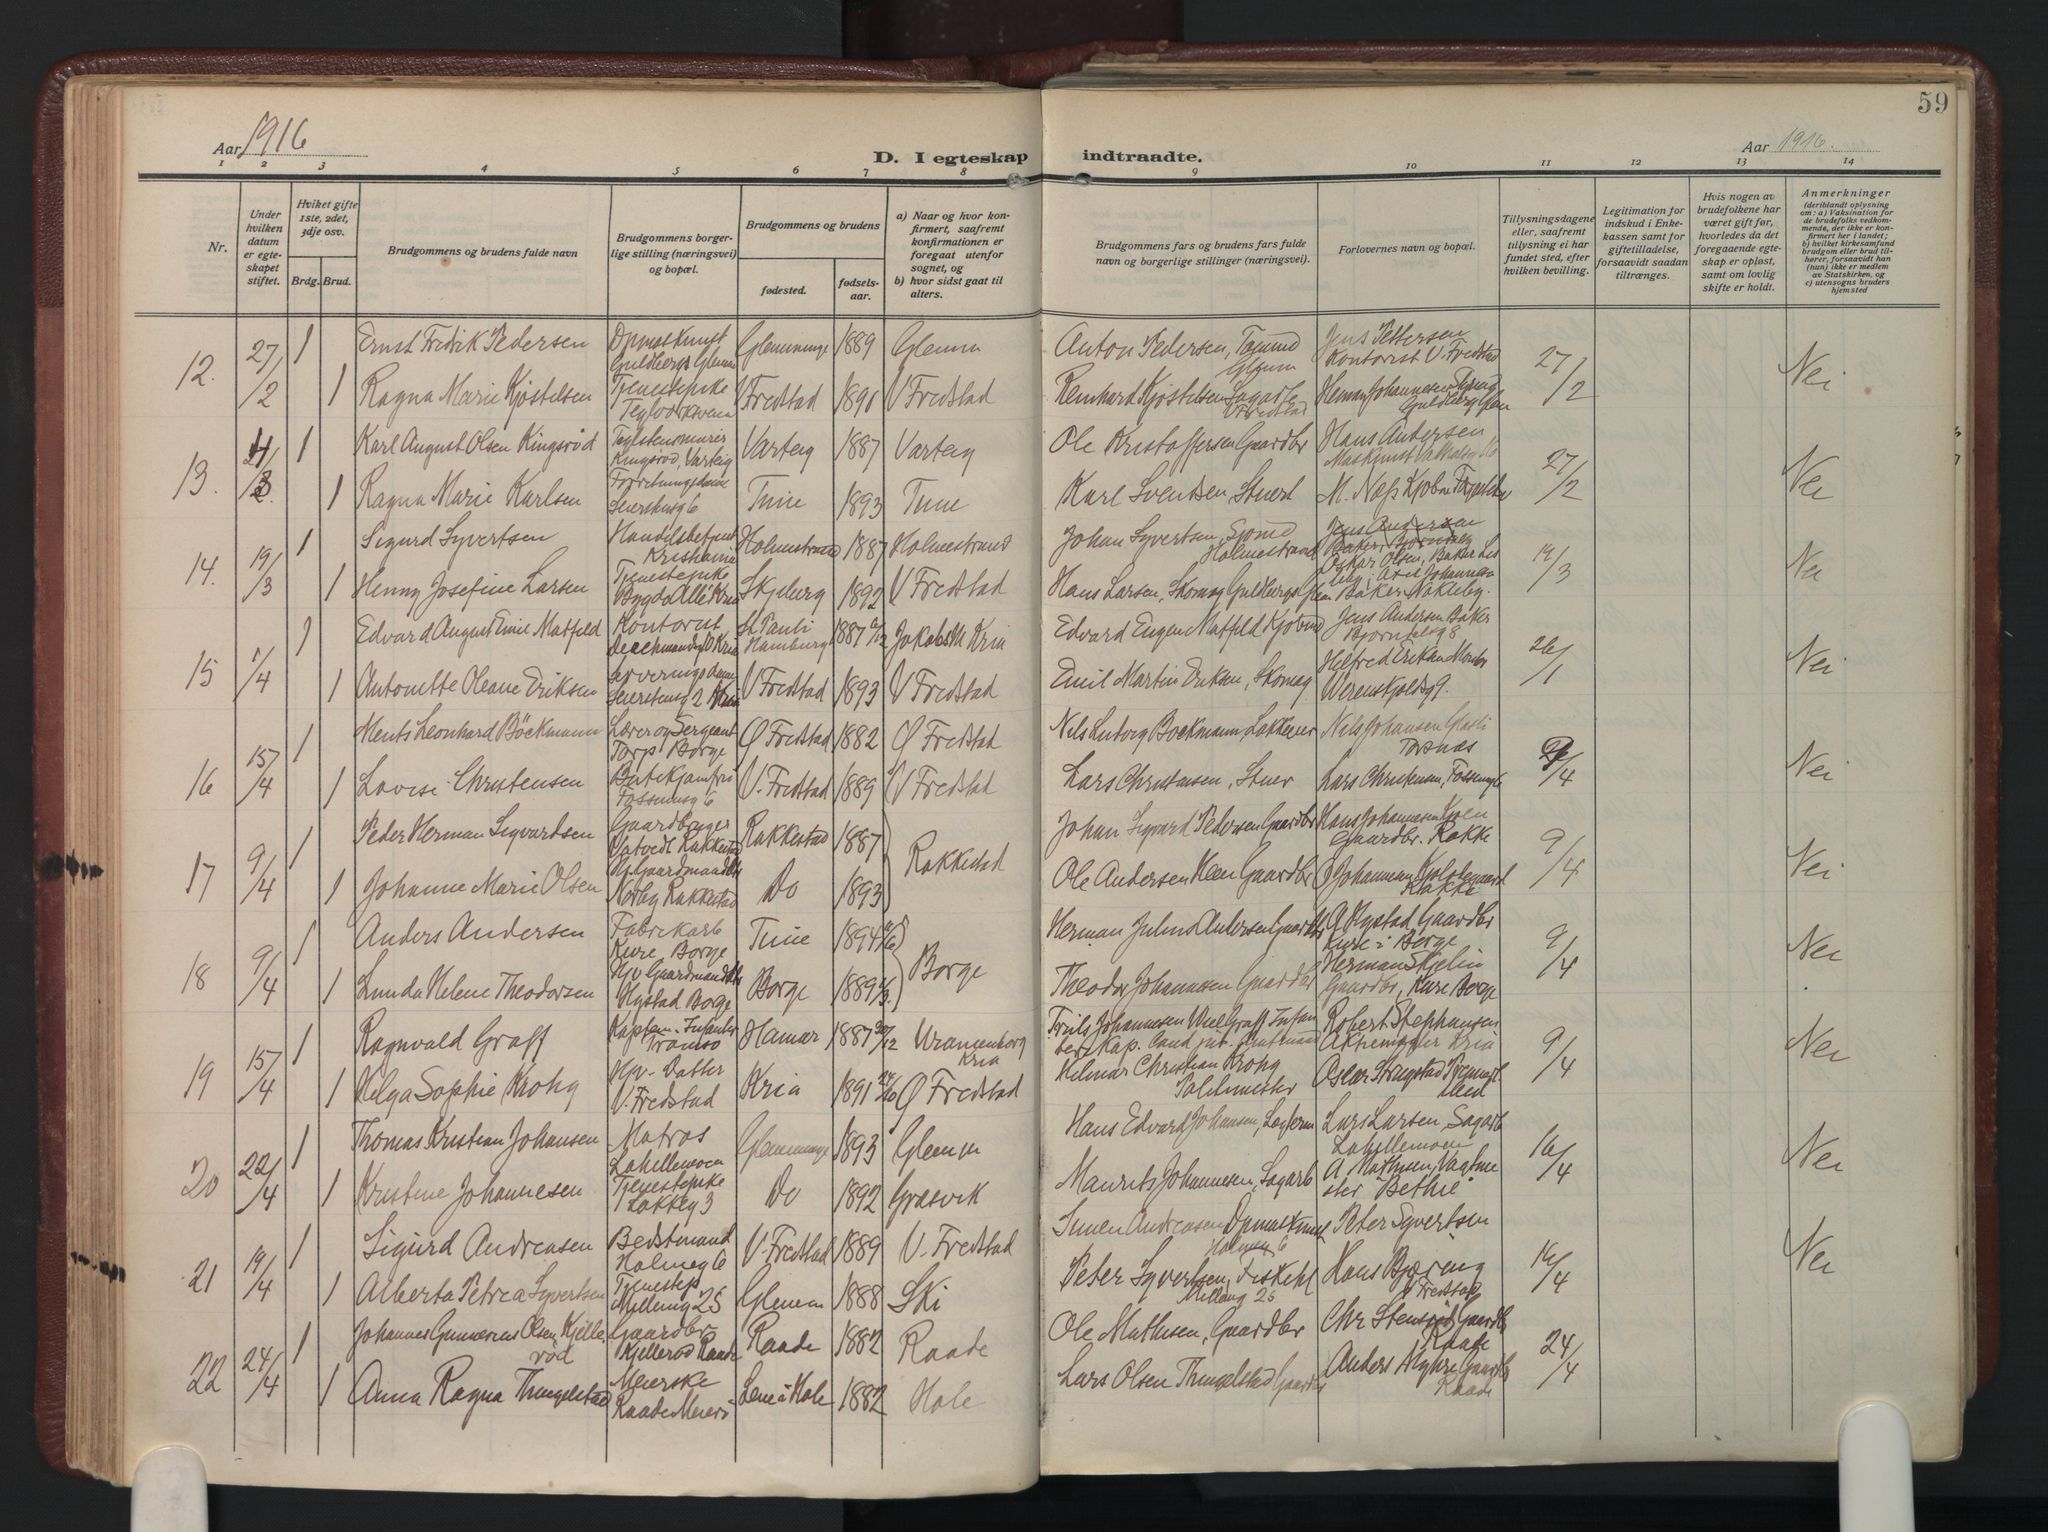 59
Aar 1916
D. I egteskap indtraadte.
Aar 1916.
1 2 3 4 5 6 7 8 9 10 11 12 13 14
Nr.
Under hvilken datum er egteskapet stiftet.
Hviket gifte 1ste, 2det, 3dje osv.
Brdg. Brud.
Brudgommens og brudens fulde navn
Brudgommens borgerlige stilling (næringsvei) og bopæl.
Brudgommens og brudens
fødested.
fødselsaar.
a) Naar og hvor konfirmert, saafremt konfirmationen er foregaat utenfor sognet, og
b) hvor sidst gaat til alters.
Brudgommens fars og brudens fars fulde navn og borgerlige stillinger (næringsvei).
Forlovernes navn og bopæl.
Tillysningsdagene eller, saafremt tillysning ei har fundet sted, efter hvilken bevilling.
Legitimation for indskud i Enkekassen samt for giftetilladelse, forsaavidt saadan tiltrænges.
Hvis nogen av brudefolkene har været gift før, hvorledes da det foregaaende egteskap er opløst, samt om lovlig skifte er holdt.
Anmerkninger (deriblandt oplysning om: a) Vaksination for de brudefolks vedkommende, der ikke er konfirmert her i landet; b) hvilket kirkesamfund brudgom eller brud tilhører, forsaavidt han (hun) ikke er medlem av Statskirken, og c) utensogns bruders hjemsted
12. 27/2 1 Ernst Fredrik Pedersen Glemminge 1889 Glemm Anton Pedersen, Jens Pettersen Kontorist V. Fredstad 27/2 Nei
1 Ragna Marie Kjøstelsen Tjenestepike V Fredstad 1890 V Fredstad Reinhard Kjøstelsen Sagarb V Fredstad Herman Johannesen
13. 1 Karl August Olsen Kingsrød Kingsrød, Varteig Varteig 1887 Varteig Ole Kristoffersen Gaardbr Hans Andersen 27/2 Nei
1 Ragna Marie Karlsen Tune 1893 Tune Karl Svendsen, Stuert M. Næss Kjøbm
14. 19/3 1 Sigurd Syvertsen Handelsbetjent Kristiania Holmestrand 1887 Holmestrand Johan Syvertsen, Sjømd Holmestrand Jens Andersen Oskar Olsen, Baker 19/3 Nei
1 Henny Josefine Larsen Tjenestepike Bygdø Alle Kria Skjeberg 1892 V Fredstad Hans Larsen, Skomag Guldbergs Glem Axel Johannesen Baker, Nakkeby.
15 1/4 1 Edvard August Emil Matfeld Kontorist St Pauli Hamburg 1887 Jakobs M Kria Edvard Eugen Matfeld Kjøbmd Jens Andersen Baker Bjørnebyg 8 26/1 Nei
1 Antonette Oleane Eriksen V Fredstad 1893 V Fredstad Emil Martin Eriksen, Skomag Hilfred Eriksen Werenskjoldsg 9.
16 15/4 1 Ments Leonhard Böckmann Lærer og Sergeant Torp Borge Ø Fredstad 1882 Ø Fredstad Nils Ludvig Bockmann, Nils Johansen Torsnæs /4 Nei
1 Lovise Christensen Butikjomfru Fossumsg 6 V. Fredstad 1889 V Fredstad Lars Christensen, Stuer Lars Christensen, Fossumg 6
17 9/4 1 Peder Herman Sigvardsen Gaardbruger Rakkestad Rakkestad 1887 Rakkestad Johan Sigvard Pedersen Gaardbr Hans Johannesen Gaardbr. Rakke 9/4 Nei
1 Johanne Marie Olsen Nørby Rakkestad Do 1893 Ole Andersen Heen Gaardbr
18 9/4 1 Anders Andersen Fabrikarb Kure Borge Tune 1894 Borge Herman Julius Andersen Gaardbr A Nystad Gaardbr Kure i Borge 9/4 Nei
1 Lunda Helene Theodorsen Nystad Borge Borge 1889 Theodor Johannesen Gaardbr Herman Skjelin Gaardbr, Kure Borge
19 15/4 1 Ragnvald Graff Kaptein Infanteri Tromsø Hamar 1887 30/12 Uranienborg Kria Truls Johannesen Wiel Graff Robert Stephansen Kria 9/4 Nei
1 Helga Sophie Krohg Hjv. Datter V. Fredstad Kria 1891 24/10 Ø Fredstad Helmar Christian Krohg Politimester Oscar
20 22/4 1 Thomas Kristian Johansen Matros Lahellemoen Glemminge 1893 Glemm Hans Edvard Johansen, Lars Larsen, Sagarb Lahellemoen 16/4 Nei
1 Kristine Johannesen Tjenestepike Do 1892 Græsvik Maurits Johannesen, Sagarb A Mathisen, Vagtmester Bethie
21 19/4 1 Sigurd Andreasen Bestmand Holmeg 6 V. Fredstad 1889 V. Fredstad Simen Andreasen Holmeg 6 Peter Syvertsen 16/4 Nei
1 Alberta Petrea Syvertsen Tjenestep Mellemg 25 Glemm 1888 Ski Peter Syvertsen, Mellemg 25 Hans Bjering V Fredstad
22 24/4 1 Johannes Gunnerius Olsen Kjellerød Gaardbr Kjellerød Raade Raade 1882 Raade Ole Mathisen, Gaardbr Chr Stensrød Gaardbr Raade 24/4
1 Anna Ragna Thingelstad Meierske Raade Meieri 1882 Hole Lars Olsen Thingelstad Gaardbr Anders Myhre Gaardbr Raade